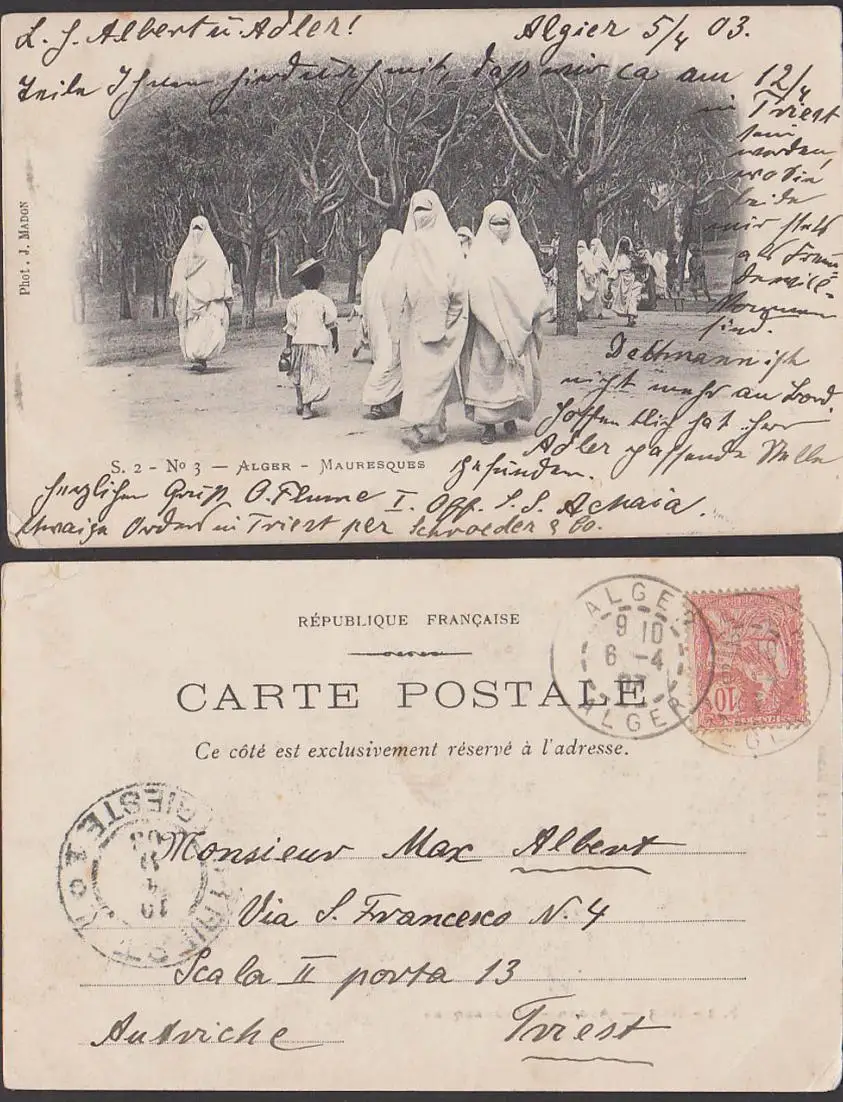 L. H. Albert u. Adler! Algier 5/4 03.
Teile Ihnen hierdurch mit, daß wir ca am 12/4
in Triest
sein
werden,
wo Sie
beide
mir stets
als Freun-
de will-
kommen
sind.
Dettmann ist
nicht mehr an Bord,
hoffentlich hat Herr
Adler passende Stelle
gefunden.
Phot. J. MADON
S. 2 - No 3 — ALGER - MAURESQUES
herzlichen Gruß O. Flume I. Off. S. S. Achaia.
etwaige Orders in Triest per Schroeder & Co.
RÉPUBLIQUE FRANÇAISE
CARTE POSTALE
Ce côté est exclusivement réservé à l'adresse.
ALGER
9 10
6 -4
03
ALGER
10
TRIESTE
TRIEST
Monsieur Max Albert
Via S. Francesco N. 4
Scala II porta 13
Autriche Triest